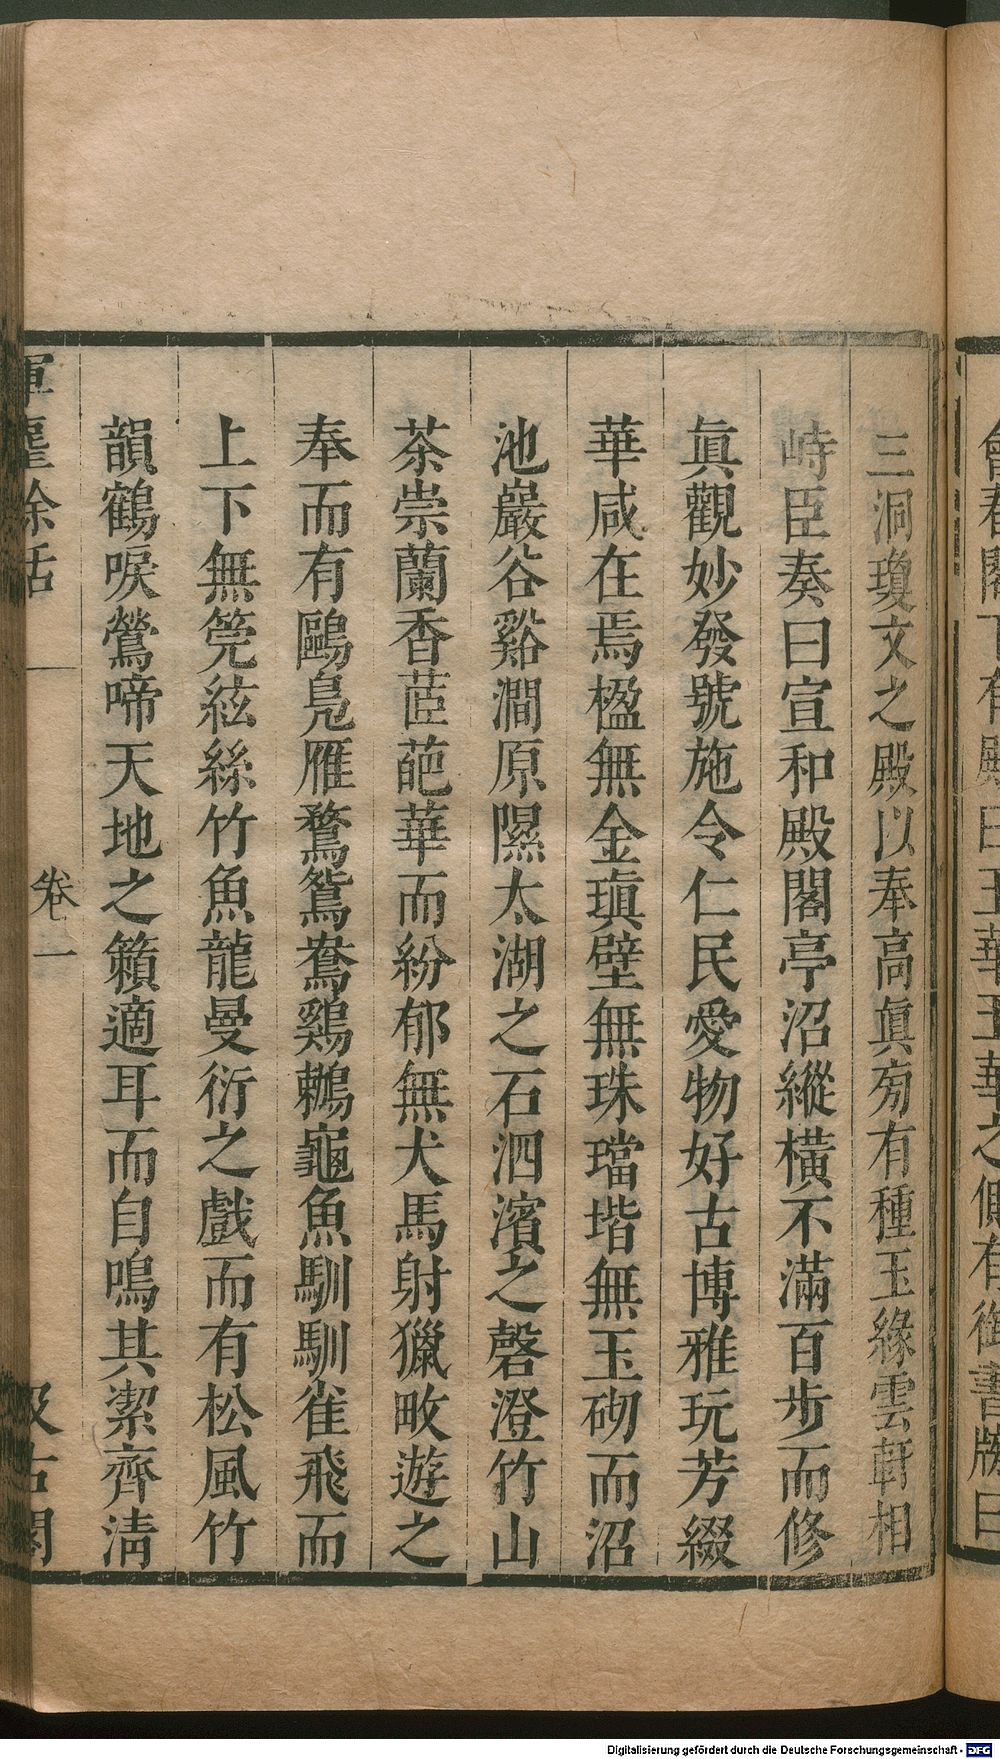 會春閣下有殿曰玉華玉華之側有御書牓曰
三洞瓊文之殿以奉高眞旁有種玉緣雲軒相
峙臣奏曰宣和殿閣亭沼縱橫不滿百步而修
眞觀妙發號施令仁民愛物好古博雅玩芳綴
華咸在焉楹無金瑱壁無珠璫堦無玉砌而沼
池巖谷谿澗原隰太湖之石泗濱之磬澄竹山
茶崇蘭香茝葩華而紛郁無犬馬射獵畋遊之
奉而有鷗鳧雁鶩鴛鴦鷄鶒龜魚馴馴雀飛而
上下無筦絃絲竹魚龍曼衍之戲而有松風竹
韻鶴唳鶯啼天地之籟適耳而自鳴其潔齊淸
揮麈餘話
卷一
汲古閣
Digitalisierung gefördert durch die Deutsche Forschungsgemeinschaft - DFG